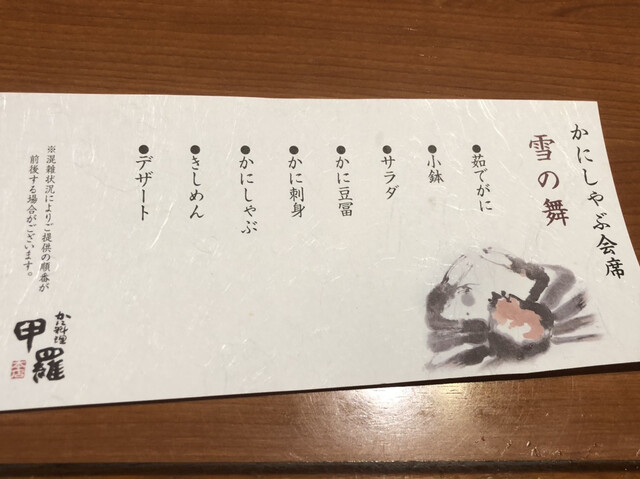 かにしゃぶ会席
雪の舞
●茹でがに
●小鉢
●サラダ
●かに豆冨
●かに刺身
●かにしゃぶ
●きしめん
●デザート
※混雑状況によりご提供の順番が
前後する場合がございます。
かに料理
甲羅
本店